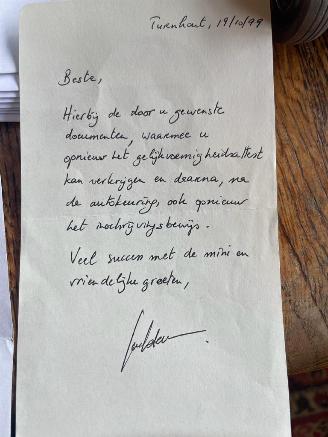 Turnhout, 19/10/99
Beste,
Hierbij de door u gewenste
documenten, waarmee u
opnieuw het gelijkvormigheidsattest
kan verkrijgen en daarna, na
de autokeuring, ook opnieuw
het inschrijvingsbewijs.
Veel succes met de mini en
vriendelijke groeten,